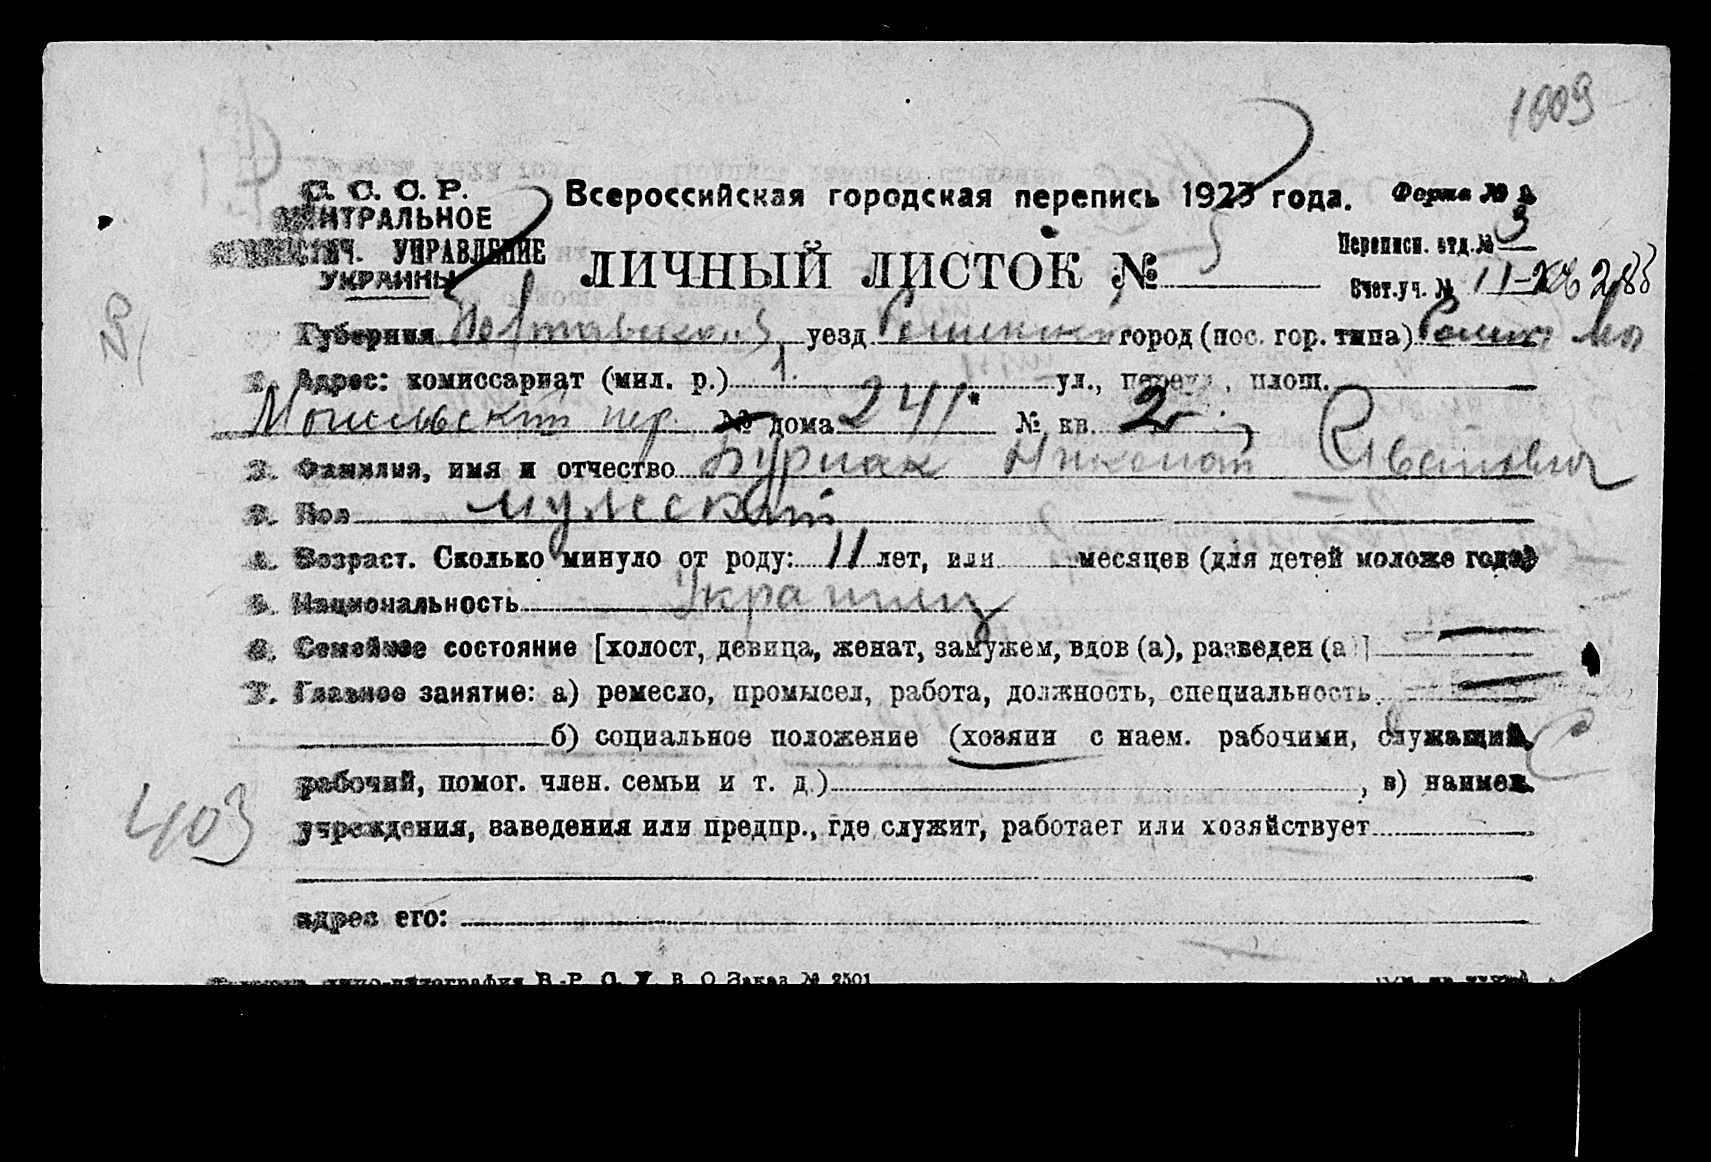 1009
С. С. С. Р.
ЦЕНТРАЛЬНОЕ
СТАТИСТИЧ. УПРАВЛЕНИЕ
УКРАИНЫ
Всероссийская городская перепись 1923 года.
Форма №
ЛИЧНЫЙ ЛИСТОК №
Переписн. отд. № 3
Счет. уч. № 11
Губерния Полтавская уезд Роменский город (пос. гор. типа) Ромны
1. Адрес: комиссариат (мил. р.) 1 ул., переул., площ.
пер. № дома 241 № кв. 2
2. Фамилия, имя и отчество Буриак Николай Иванович
3. Пол мужской
4. Возраст. Сколько минуло от роду: 11 лет, или месяцев (для детей моложе года)
5. Национальность Украинец
6. Семейное состояние [холост, девица, женат, замужем, вдов (а), разведен (а)]
7. Главное занятие: а) ремесло, промысел, работа, должность, специальность
б) социальное положение (хозяин с наем. рабочими, служащий,
рабочий, помог. член. семьи и т. д.) , в) наимен.
403
учреждения, заведения или предпр., где служит, работает или хозяйствует
адрес его:
Заказ № 2501